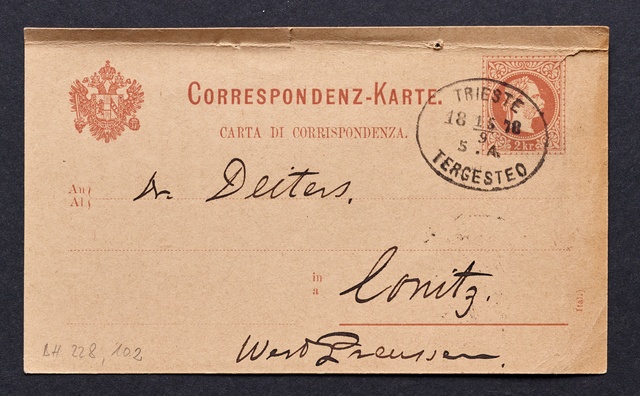 CORRESPONDENZ-KARTE.
CARTA DI CORRISPONDENZA.
TRIESTE
18 15 78
9
5 . A.
TERGESTEO
2 kr.
An
Al
Dr. Deiters.
in
a
Conitz.
(ital.)
West Preussen.
BH 228, 102